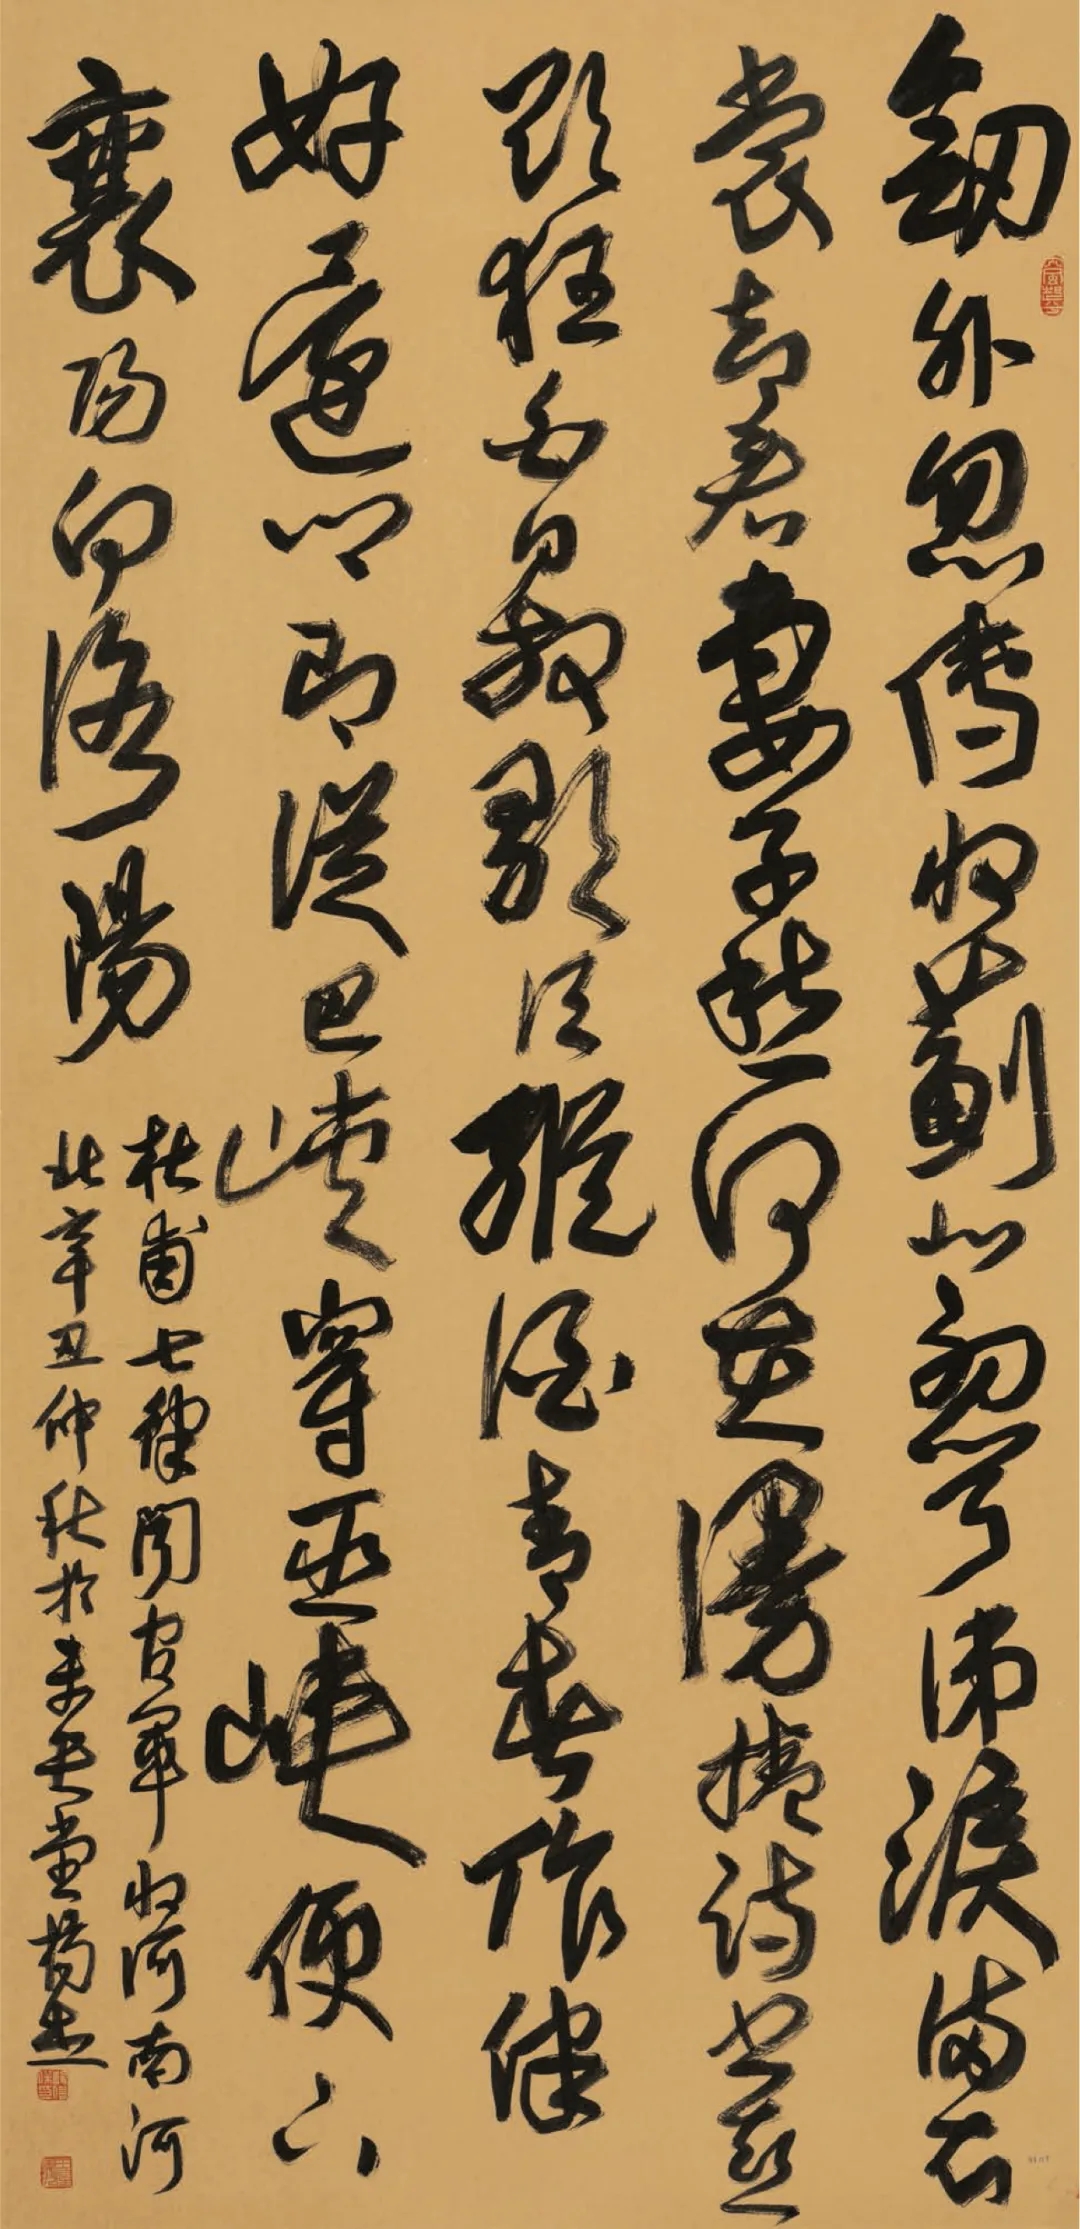 劍外忽傳收薊北初聞涕淚滿衣
裳却看妻子愁何在漫捲詩書喜
欲狂白日放歌須縱酒青春作伴
好還鄉即從巴峽穿巫峽便下
襄陽向洛陽
杜甫七律聞官軍收河南河
北辛丑仲秋於未央堂楊